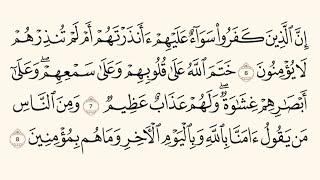 إِنَّ ٱلَّذِينَ كَفَرُوا۟ سَوَآءٌ عَلَيْهِمْ ءَأَنذَرْتَهُمْ أَمْ لَمْ تُنذِرْهُمْ
لَا يُؤْمِنُونَ 6 خَتَمَ ٱللَّهُ عَلَىٰ قُلُوبِهِمْ وَعَلَىٰ سَمْعِهِمْ ۖ وَعَلَىٰٓ
أَبْصَٰرِهِمْ غِشَٰوَةٌ ۖ وَلَهُمْ عَذَابٌ عَظِيمٌ 7 وَمِنَ ٱلنَّاسِ
مَن يَقُولُ ءَامَنَّا بِٱللَّهِ وَبِٱلْيَوْمِ ٱلْءَاخِرِ وَمَا هُم بِمُؤْمِنِينَ 8